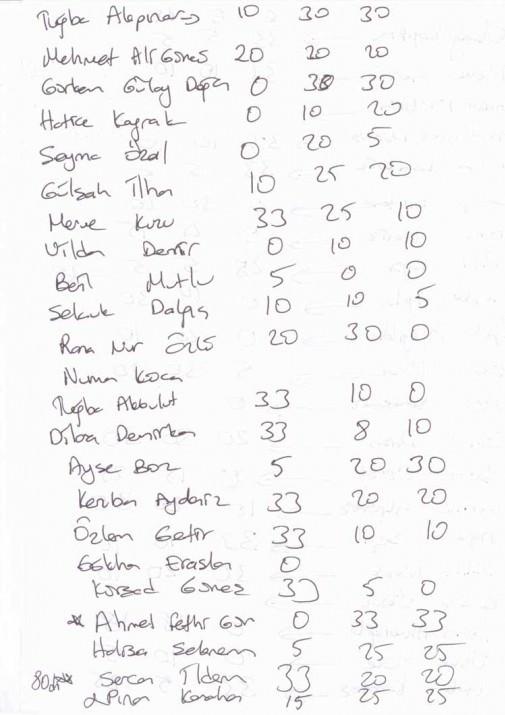 Tuğba Alapınar 10 30 30
Mehmet Ali Gunes 20 20 20
Gorkem Gülay Doğan 0 30 30
Hatice Kayrak 0 10 20
Seyma Özal 0 20 5
Gülsah İlhan 10 25 20
Merve Kuru 33 25 10
Vildan Demir 0 10 10
Beril Mutlu 5 0 0
Selcuk 10 10 5
Rana Nur 20 30 0
Numan Koca
Tuğba Akbulut 33 10 0
Dilba Demirkan 33 8 10
Ayse Boz 5 20 30
Keziban 33 20 20
Özlem Getir 33 10 10
Gökhan Eraslan 0
Kürsad Gunes 33 5 0
* Ahmet Fethi Gün 0 33 33
5 25 25
Sercan 33 20 20
Pınar 15 25 25